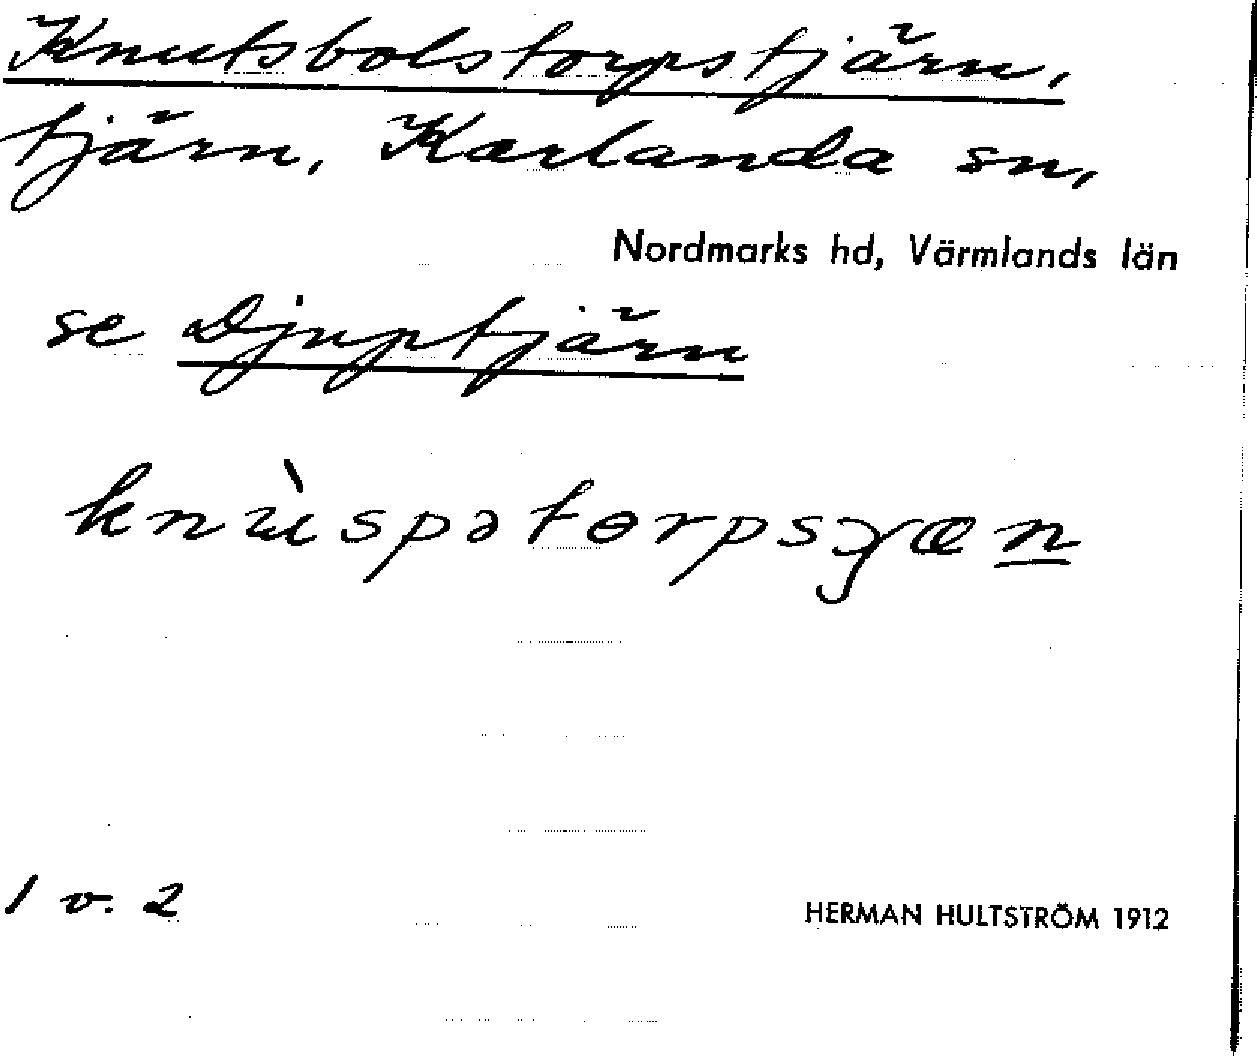 Knutsbolstorpstjärn,
tjärn, Karlanda sn,
Nordmarks hd, Värmlands län
se Djuptjärn
1 v. 2
HERMAN HULTSTRÖM 1912